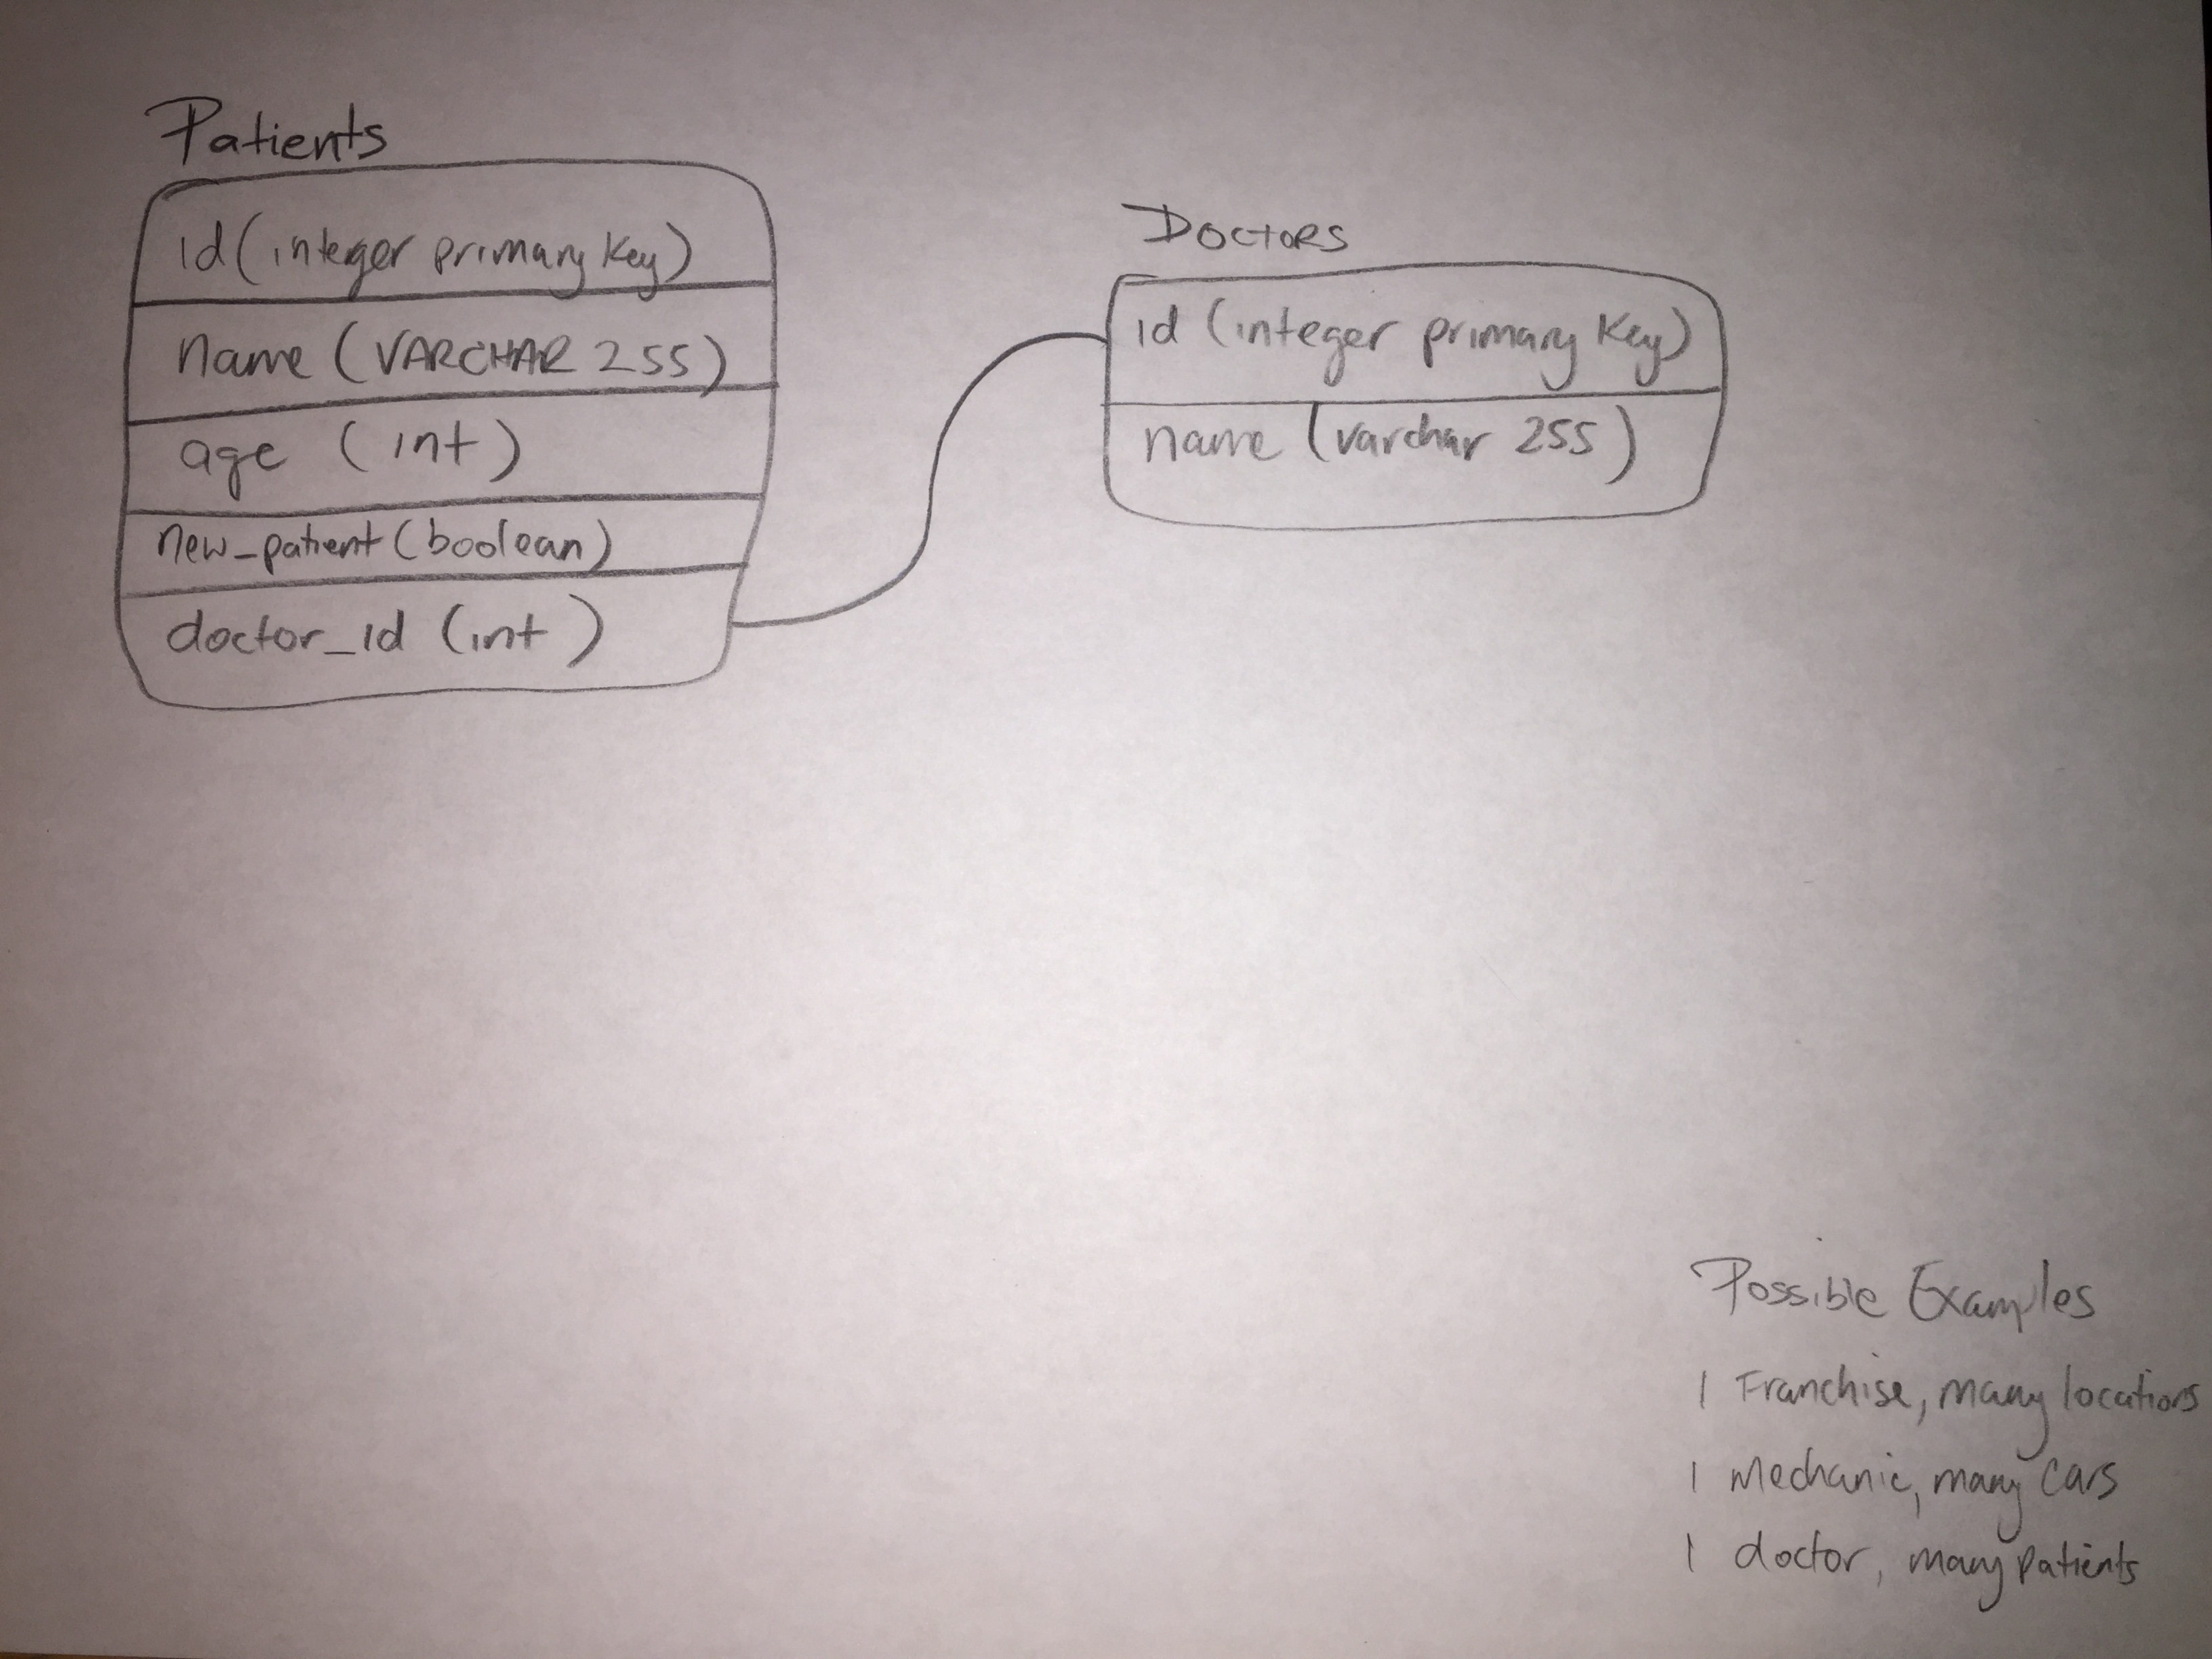 Patients
id (integer primary key)
name (VARCHAR 255)
age (int)
new_patient (boolean)
doctor_id (int)
Doctors
id (integer primary key)
name (varchar 255)
Possible Examples
1 Franchise, many locations
1 Mechanic, many cars
1 doctor, many patients